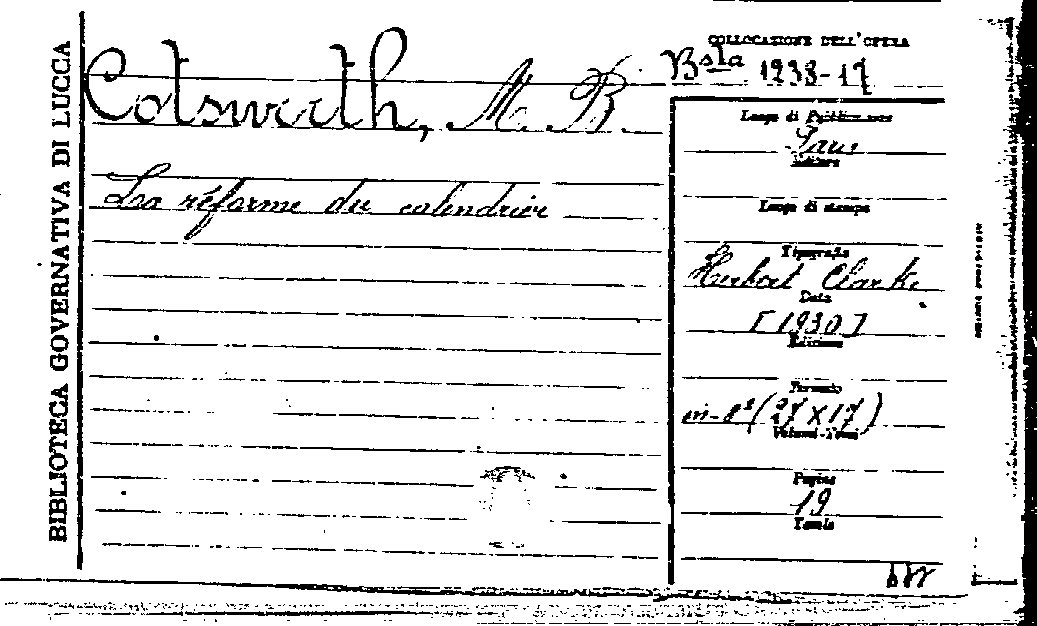 BIBLIOTECA GOVERNATIVA DI LUCCA
Cotsworth, M. B.
La réforme du calendrier
COLLOCAZIONE DELL'OPERA
Bsta 1238-17
Luogo di Pubblicazione
Editore
Luogo di stampa
Tipografia
Herbert Clarke
Data
[1930]
Edizione
Formato
in-8° (27 x 17)
Volumi-Tomi
Pagine
19
Tavole